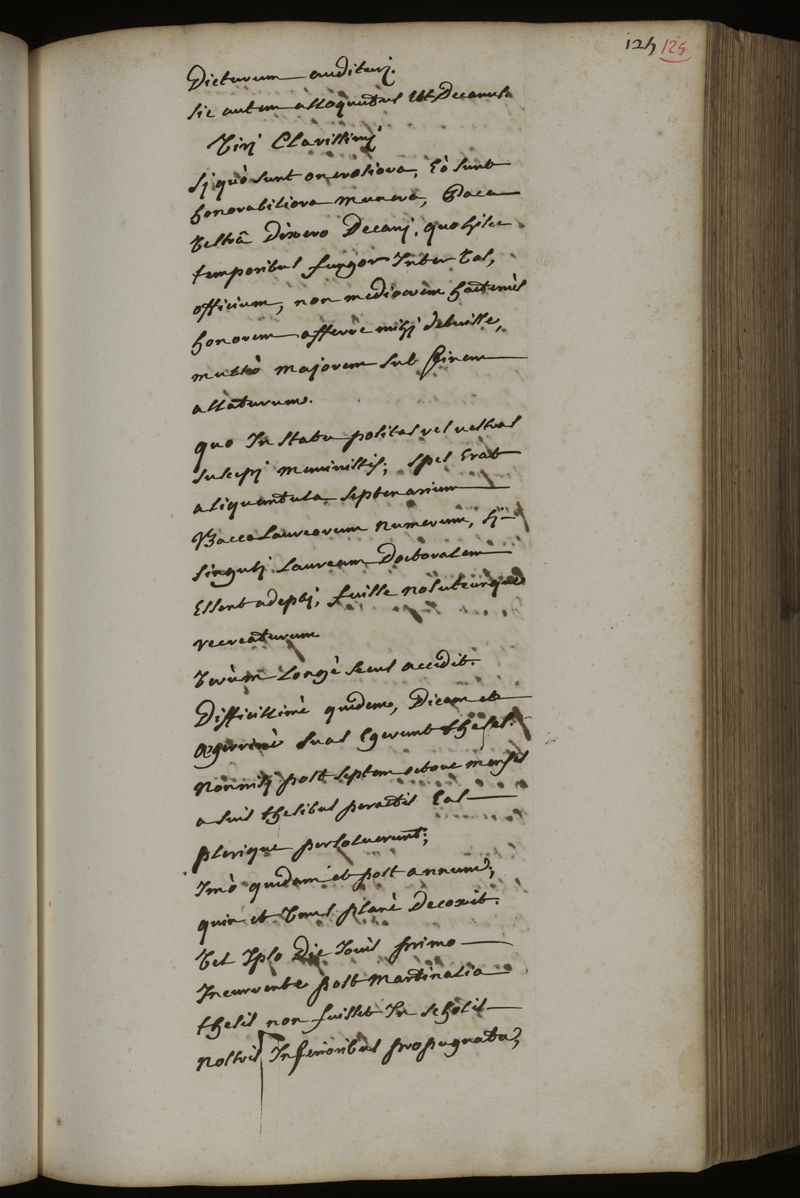 124 125
Dicturum auditurj.
sic autem alloquutus est Decanus.
Virj Clarissimj
sj quò sunt onerosiora, Eò sunt
honorabiliora munera, Pace
vestrâ Dixero Decanj, quo hisce
temporibus fungor Inter vos,
officium, non mediocrem hactenùs
honorem afferre mihj debuisse,
multò majorem sub finem
allaturum.
quo In statu politas res vestras
suscepj meministis; spes Erat
aliquantula septenarium
Baccalaureorum numerum, sj
singulj Lauream Doctoralem
Essent adeptj, fuisse nos utcunque
recreaturum
verùm Longè secus accidit.
Difficillimè quidem, Dicam et
ægerrimè suas Egerunt theses.
Nonnisj post septem octove menses
a suis thesibus peractis Eas
plerique persoluerunt;
Imò quidam et post annum;
quin et Vnus planè Decoxit.
Vt Ipso Die Jouis primo
Incurrente post Martinalia
thesis non fuisset In scholis
nostris Inferioribus propugnata,